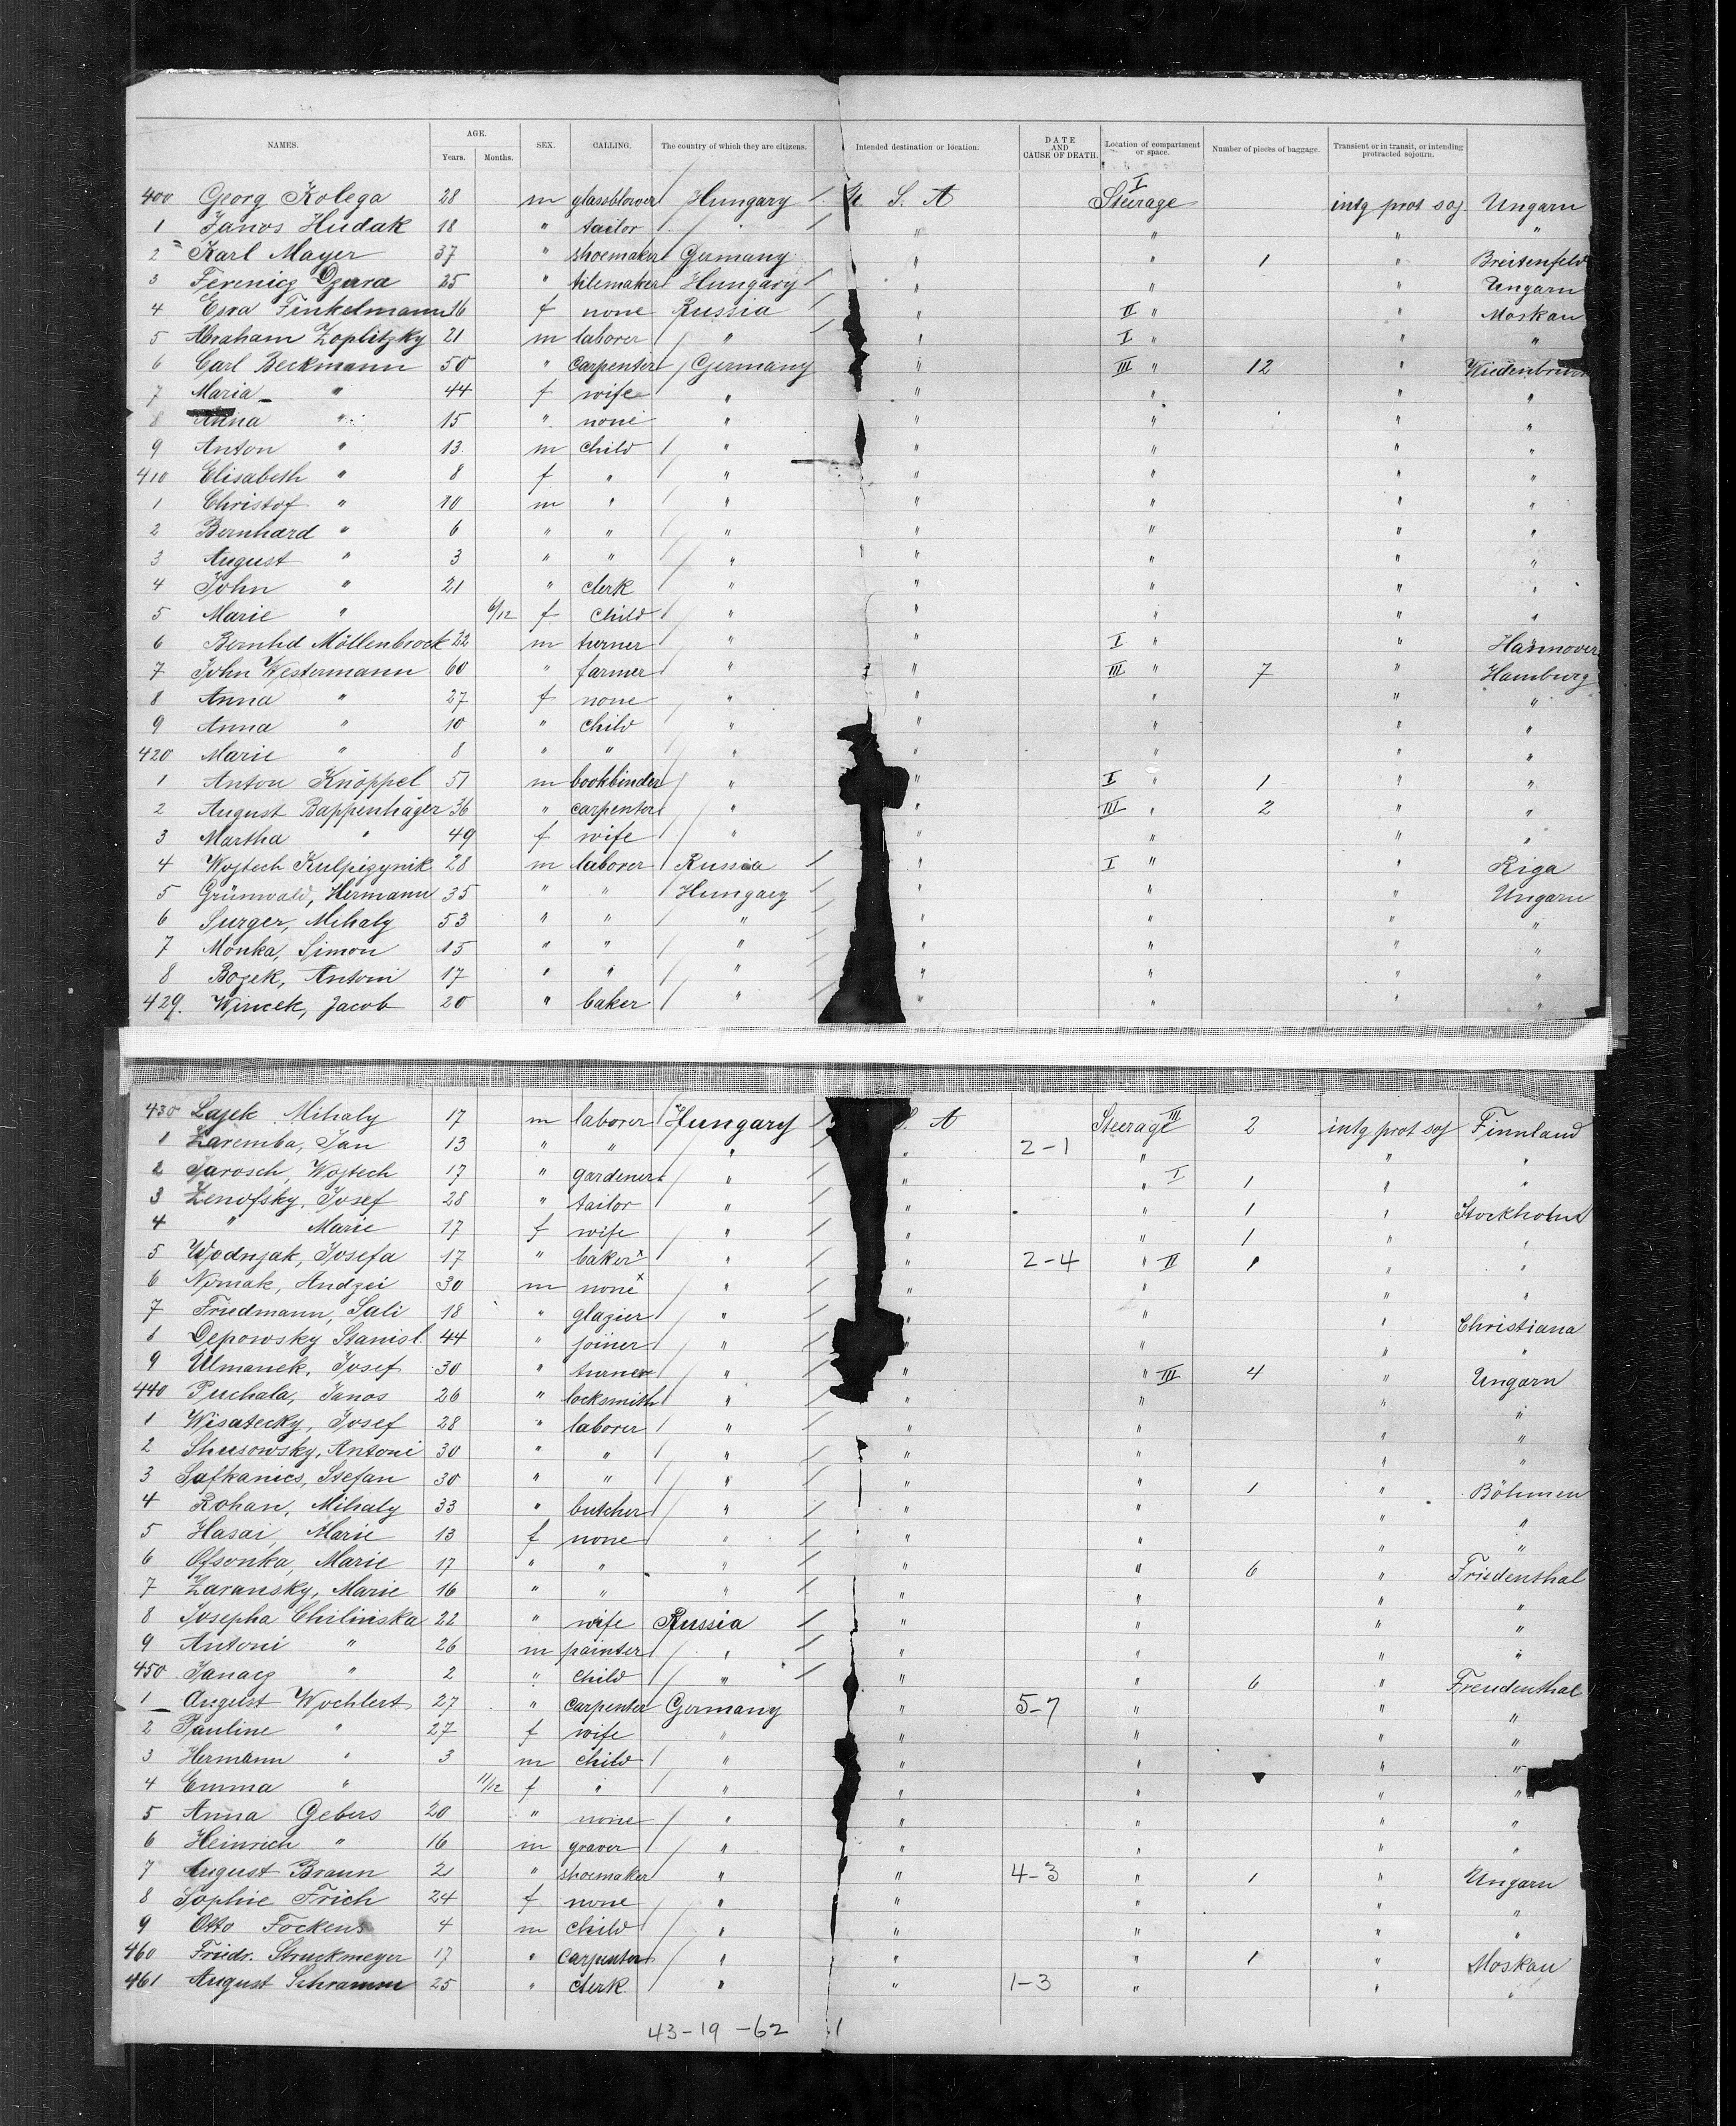 NAMES. AGE. Years. Months. SEX. CALLING. The country of which they are citizens. Intended destination or location. DATE AND CAUSE OF DEATH. Location of compartment or space. Number of pieces of baggage. Transient or in transit, or intending protracted sojourn.
400 Georg Kolega 28 m glassblower Hungary U. S. A I Steerage intg prot soj Ungarn
1 Janos Hudak 18 " tailor " " " " "
2 Karl Mayer 37 " shoemaker Germany " " 1 " Breitenfeld
3 Ferenicz Dzura 25 " tilemaker Hungary " " " Ungarn
4 Esra Finkelmann 16 f none Russia " II " " Moskau
5 Abraham Zoplitzky 21 m laborer " " I " " "
6 Carl Beckmann 50 " carpenter Germany " III " 12 "
7 Maria " 44 f wife " " " " "
8 Anna " 15 " none " " " " "
9 Anton " 13 m child " " " " "
410 Elisabeth " 8 f " " " " " "
1 Christof " 10 m " " " " " "
2 Bernhard " 6 " " " " " " "
3 August " 3 " " " " " " "
4 John " 21 " clerk " " " " "
5 Marie " 6/12 f child " " " " "
6 Bernhd Möllenbrock 22 m turner " " I " " Hannover
7 John Westermann 60 " farmer " " III " 7 " Hamburg
8 Anna " 27 f none " " " " "
9 Anna " 10 " child " " " " "
420 Marie " 8 " " " " " " "
1 Anton Knöppel 51 m bookbinder " " I " 1 " "
2 August Bappenhäger 36 " carpenter " " III " 2 " "
3 Martha " 49 f wife " " " " "
4 Wojtech Kulpiczynik 28 m laborer Russia " I " " Riga
5 Grünwald, Hermann 35 " " Hungary " " " Ungarn
6 Surger, Mihaly 53 " " " " " " "
7 Monka, Simon 15 " " " " " " "
8 Bozek, Antoni 17 " " " " " " "
429. Wincek, Jacob 20 " baker " " " " "
430 Lajek Mihaly 17 m laborer Hungary S. A Steerage III 2 intg prot soj Finnland
1 Zaremba, Jan 13 " " " " 2-1 " " "
2 Jarosch, Wojtech 17 " gardener " " " I 1 " "
3 Zenofsky, Josef 28 " tailor " " " 1 " Stockholm
4 " Marie 17 f wife " " " 1 " "
5 Wodnjak, Josefa 17 " baker x " " 2-4 " II 1 " "
6 Nowak, Andzei 30 m none x " " " " "
7 Friedmann, Sali 18 " glazier " " " " Christiana
8 Depowsky Stanisl. 44 " joiner " " " " "
9 Ulmanek, Josef 30 " turner " " " III 4 " Ungarn
440 Puchala, Janos 26 " locksmith " " " " "
1 Wisatecky, Josef 28 " laborer " " " " "
2 Shusowsky, Antoni 30 " " " " " " "
3 Safkanics, Stefan 30 " " " " " 1 " Böhmen
4 Rohan, Mihaly 33 " butcher " " " " "
5 Hasai, Marie 13 f none " " " " "
6 Ofsonka, Marie 17 " " " " " 6 " Friedenthal
7 Zaransky, Marie 16 " " " " " " "
8 Josepha Chilinska 22 " wife Russia " " " "
9 Antoni " 26 m painter " " " " "
450 Janacz " 2 " child " " " 6 " Freudenthal
1 August Wochlert 27 " carpenter Germany " 5-7 " " "
2 Pauline " 27 f wife " " " " "
3 Hermann " 3 m child " " " " "
4 Emma " 11/12 f " " " " " "
5 Anna Gebers 20 " none " " " " "
6 Heinrich " 16 m graver " " " " "
7 August Braun 21 " shoemaker " " 4-3 " 1 " Ungarn
8 Sophie Frich 24 f none " " " " "
9 Otto Fockens 4 m child " " " " "
460 Friedr. Struckmeyer 17 " carpenter " " " 1 " Moskau
461 August Schramm 25 " clerk. " " 1-3 " " "
43-19-62 1